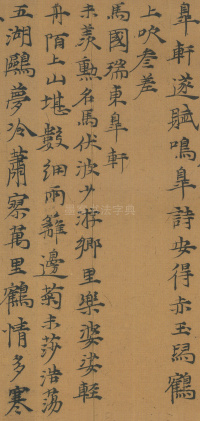 皐軒遂賦鳴皐詩安得赤玉舄鶴
上吹參差
馬國瑞東皐軒
未羨勲名馬伏波少游鄉里樂婆娑輕
舟陌上山堪數細雨離邊菊未莎浩蕩
五湖鷗夢冷蕭寥萬里鶴情多寒